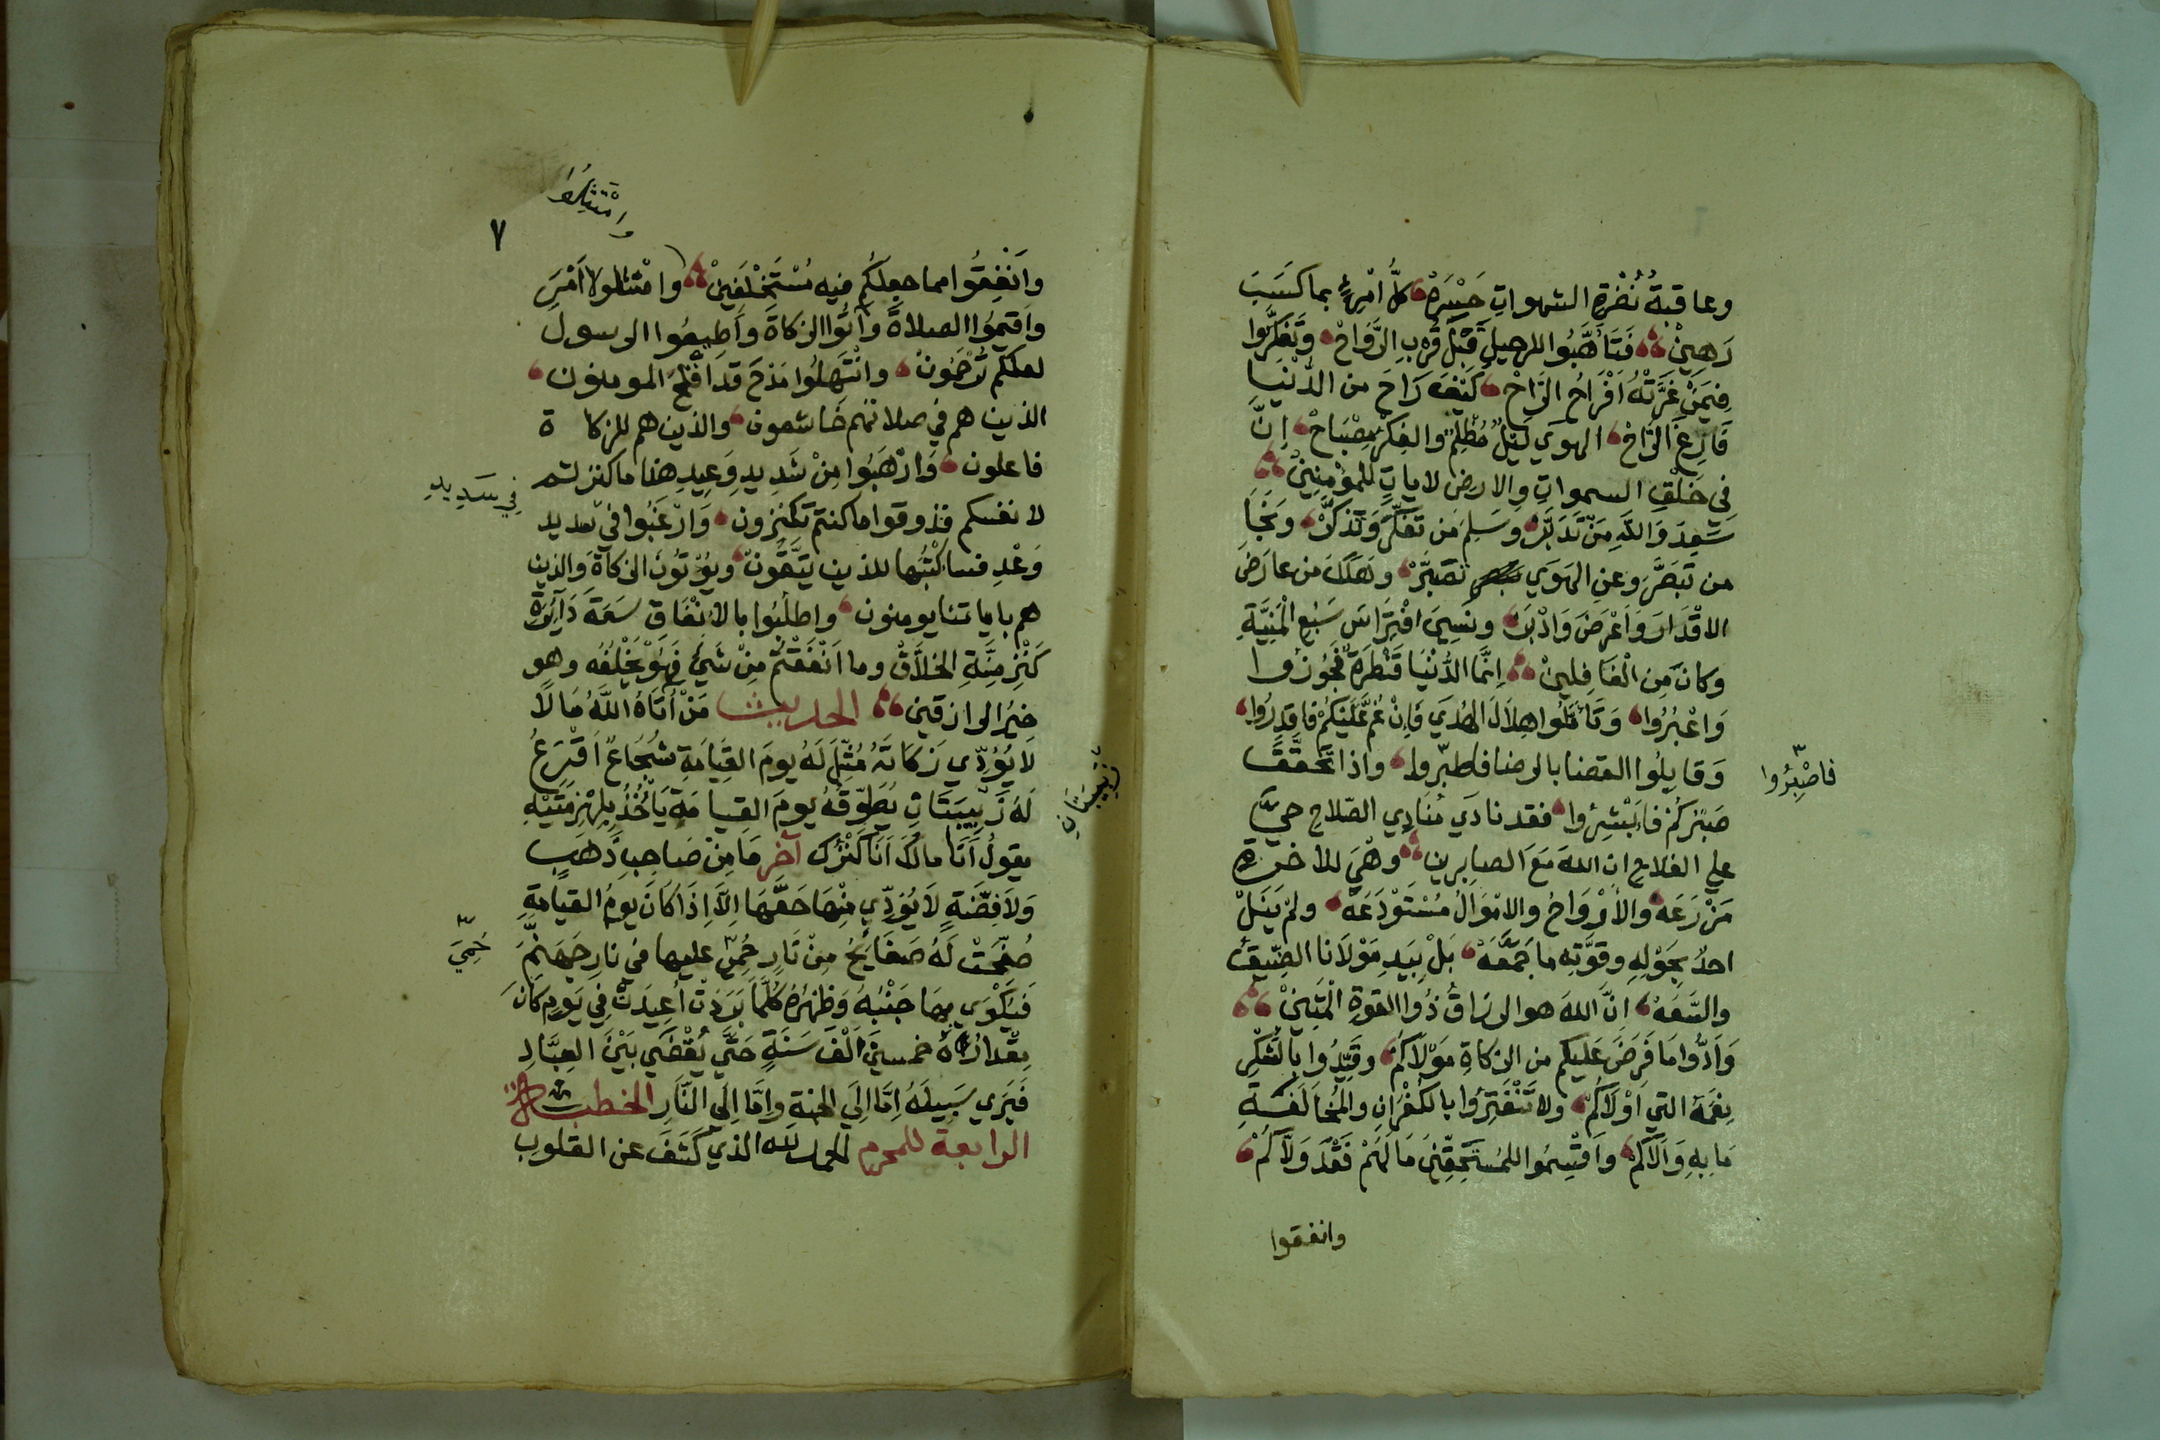 وعاقبةُ نُضْرةِ الشهواتِ حَسْرَهْ كلُّ امْرِئٍ بما كَسَبَ
رَهِينْ فَتَأَهَّبُوا للرحيلِ قَبْلَ قُرْبِ الرَّوَاحْ وَتَفَكَّرُوا
فِيمَنْ غَرَّتْهُ أَفْرَاحُ الرَّاحْ كَيْفَ رَاحَ من الدُّنْيَا
فَارِغَ الرَّاحْ الهوَي لَيْلٌ مُظْلِمٌ والفِكْرُ مِصْبَاحْ إنَّ
في خَلْقِ السمواتِ والارضِ لاياتٍ للمؤْمِنِينْ
سَعِدَ وَاللهِ مَنْ تَدَبَّرْ وسَلِمَ مَن تَفَكَّرَ وَتَذَكَّرْ وَنَجَا
من تَبَصَّرَ وعنِ الهَوَي تَصَبَّرْ وهَلَكَ من عارَضَ
الاقْدَارَ وَاَعْرَضَ وَادْبَرْ ونَسِيَ افْتِرَاسَ سَبُعِ الْمَنِيَّةِ
وكانَ مِنَ الْغَافِلِينْ اِنَّمَا الدُّنْيَا قَنْطَرَةٌ فَجُوزُوا
وَاعْبُرُوا وَتَأَمَّلُوا هِلَالَ الهُدَي فَإِنْ غُمَّ عَلَيْكُمْ فَاقْدِرُوا
وَقابِلُوا القضا بالرضا فاصبروا واذا تَحَقَّقَ
فاصْبِرُوا
صَبْرُكُمْ فَأَبْشِرُوا فقد نادَي مُنَادِي الصّلاحِ حيَّ
علي الفلاحِ ان اللهَ مَعَ الصابرين وهْيَ للاخرةِ
مَزْرَعَهْ والأَرْوَاحُ والامْوَالُ مُسْتَوْدَعَهْ ولمْ يَنَلْ
احدٌ بِحَوْلِهِ وقوَّتِهِ ما جَمَعَهْ بَلْ بِيَدِ مَوْلَانا الضِّيقُ
والسَّعَهْ إنَّ اللهَ هو الرزاقُ ذُوا القوةِ الْمَتِينْ
وَاَدُّوا مَا فَرَضَ عَليكم من الزكاةِ مَوْلَاكُمْ وقَيِّدُوا بِالشُّكْرِ
نِعَمَهُ التي اَوْلَاكُمْ ولا تَغْتَرُّوا بالكُفْرَانِ والْمُخَالَفَةِ
مَا بِهِ وَالَاكُمْ وَاَقْسِمُوا للمُسْتَحِقِّينَ مَا لَهُمْ فَقَدْ وَلَّاكُمْ
وانفقوا
وامْتَثِلُوا
٧
وَاَنْفِقُوا مما جعلكُم فيه مُسْتَخْلَفِينْ وامْتثلوا اَمْرَ
واَقيمُوا الصلاةَ وَآتُوا الزكاةَ وأَطِيعُوا الرسول
لعلكم تُرْحَمُونْ وانْتَهِلُوا مَدْحَ قَدْ اَفْلَحَ المومنون
الذين هم في صلاتهم خَاشعون والذين هم للزكاة
فاعلون وَارْهَبُوا مِنْ شَدِيدِ وَعِيدِ هذا ما كنزتم
لانفسكم فذوقوا ما كنتم تَكْنِزون وَارْغَبُوا في تعديد
في سَدِيدِ
وَعْدِ فسأكْتُبُها للذين يَتَّقُونْ ويُؤْتُونَ الزكاةَ والذين
هم باياتنا يومنون واطلُبُوا بالاِنْفَاقِ سَعَةَ دَآئِرَةِ
كَنْزِ مِنَّةِ الخلاَّقْ وما اَنْفَقْتُمْ مِنْ شَيْءٍ فَهُوَ يُخْلِفُه وهو
خيرُ الرازقين الحديث مَنْ أَتَاهُ اللّهُ مَالًا
لَا يُؤَدِّي زَكَاتَهُ مُثِّلَ لَهُ يومَ القِيَامَةِ شُجَاعٌ اَقْرَعُ
لَهُ زَبِيبَتَانِ يُطَوِّقُهُ يومَ القِيامَةِ يَأْخُذُ بِلِهْزِمَتَيْهِ
زَبِيبَتَانِ
يقولُ اَنَا مالُكَ اَنَا كَنْزُكَ آخر مَا مِنْ صَاحِبِ ذَهَبٍ
وَلَا فِضَّةٍ لَا يُؤَدِّي مِنْهَا حَقَّهَا اِلَّا اِذَا كَانَ يومُ القيامةِ
صُفِّحَتْ لَهُ صَفَايِحُ مِنْ نَارٍ حُمِيَ عليها في نارِ جَهَنَّمَ
حُمِيَ
فَيُكْوَي بِهَا جَنْبُهُ وَظَهْرُهُ كُلَّمَا بَرَدَتْ اُعِيدَتْ فِي يَومٍ كَانَ
مِقْدَارُهُ خمسينَ اَلْفَ سَنَةٍ حَتَّي يُقْضَي بَيْنَ العِبَادِ
فَيَرَي سَبِيلَهُ اِمَّا اِلَي الجنة وَاِمَّا اِلَي النَّارِ الخطبة
الرابعة للمحرم الحمد لله الذي كَشَفَ عن القلوب